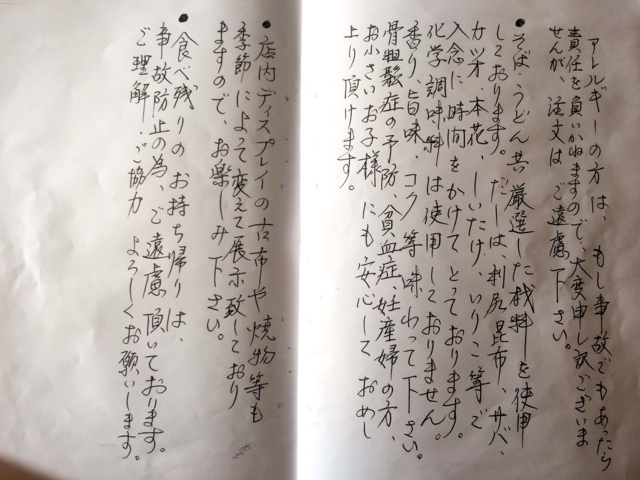 アレルギーの方は、もし事故でもあったら
責任を負いかねますので、大変申し訳ございま
せんが、注文はご遠慮下さい。
●そば・うどん共厳選した材料を使用
しております。だしは、利尻昆布、サバ、
カツオ、本花、しいたけ、いりこ等で
入念に時間をかけてとっております。
化学調味料は使用しておりません。
香り、旨味、コク等味わって下さい。
骨粗鬆症の予防、貧血症、妊産婦の方、
お小さいお子様にも安心しておめし
上り頂けます。
●店内ディスプレイの古布や焼物等も
季節によって変えて展示致しており
ますので、お楽しみ下さい。
●食べ残りのお持ち帰りは、
事故防止の為、ご遠慮頂いております。
ご理解・ご協力よろしくお願いします。